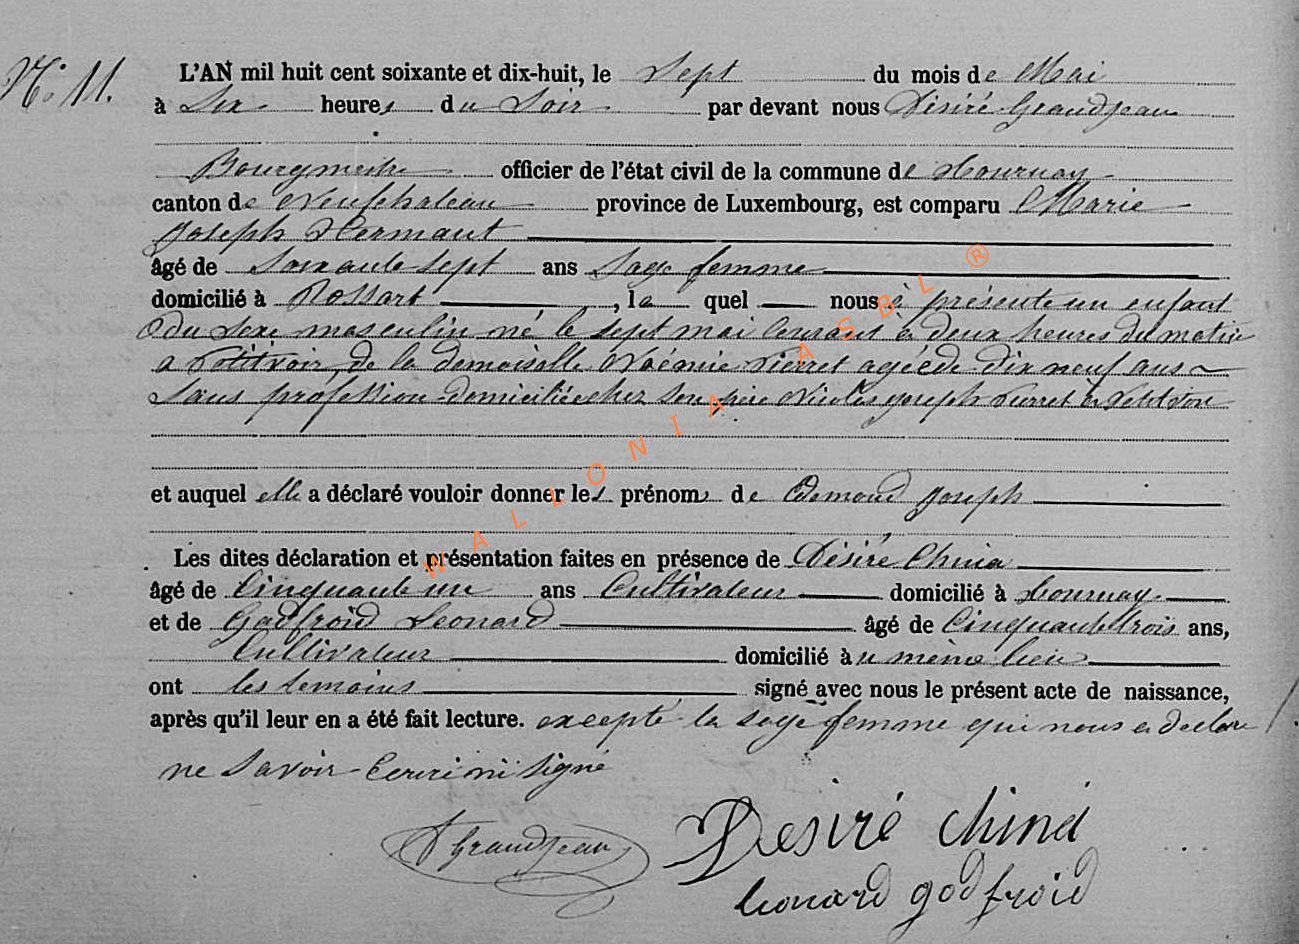 N° 11.
L'AN mil huit cent soixante et dix-huit, le Sept du mois de Mai
à Six heures du Soir par devant nous Désiré Grandjean
Bourgmestre officier de l'état civil de la commune de Tournay
canton de Neufchateau province de Luxembourg, est comparu Marie
Joseph Hermant
âgé de Soixante sept ans Sage femme
domicilié à Rossart, la quel nous a présenté un enfant
du Sexe masculin né le sept mai Courant à deux heures du matin
a Petitvoir de la demoiselle Noémie Pierret agée de dix neuf ans
Sans profession domiciliée chez Son père Nicolas Joseph Pierret à Petitvoir
et auquel elle a déclaré vouloir donner les prénoms de Edmond Joseph
Les dites déclaration et présentation faites en présence de Désiré China
âgé de Cinquante un ans Cultivateur domicilié à Tournay
et de Godfroid Leonard âgé de Cinquante trois ans,
Cultivateur domicilié au même lieu
ont les temoins signé avec nous le présent acte de naissance,
après qu'il leur en a été fait lecture. excepté la sage femme qui nous a declare
ne Savoir Ecrire ni Signé
D Grandjean
Desiré chinà
Leonard godfroid
WALLONIA ASBL ®